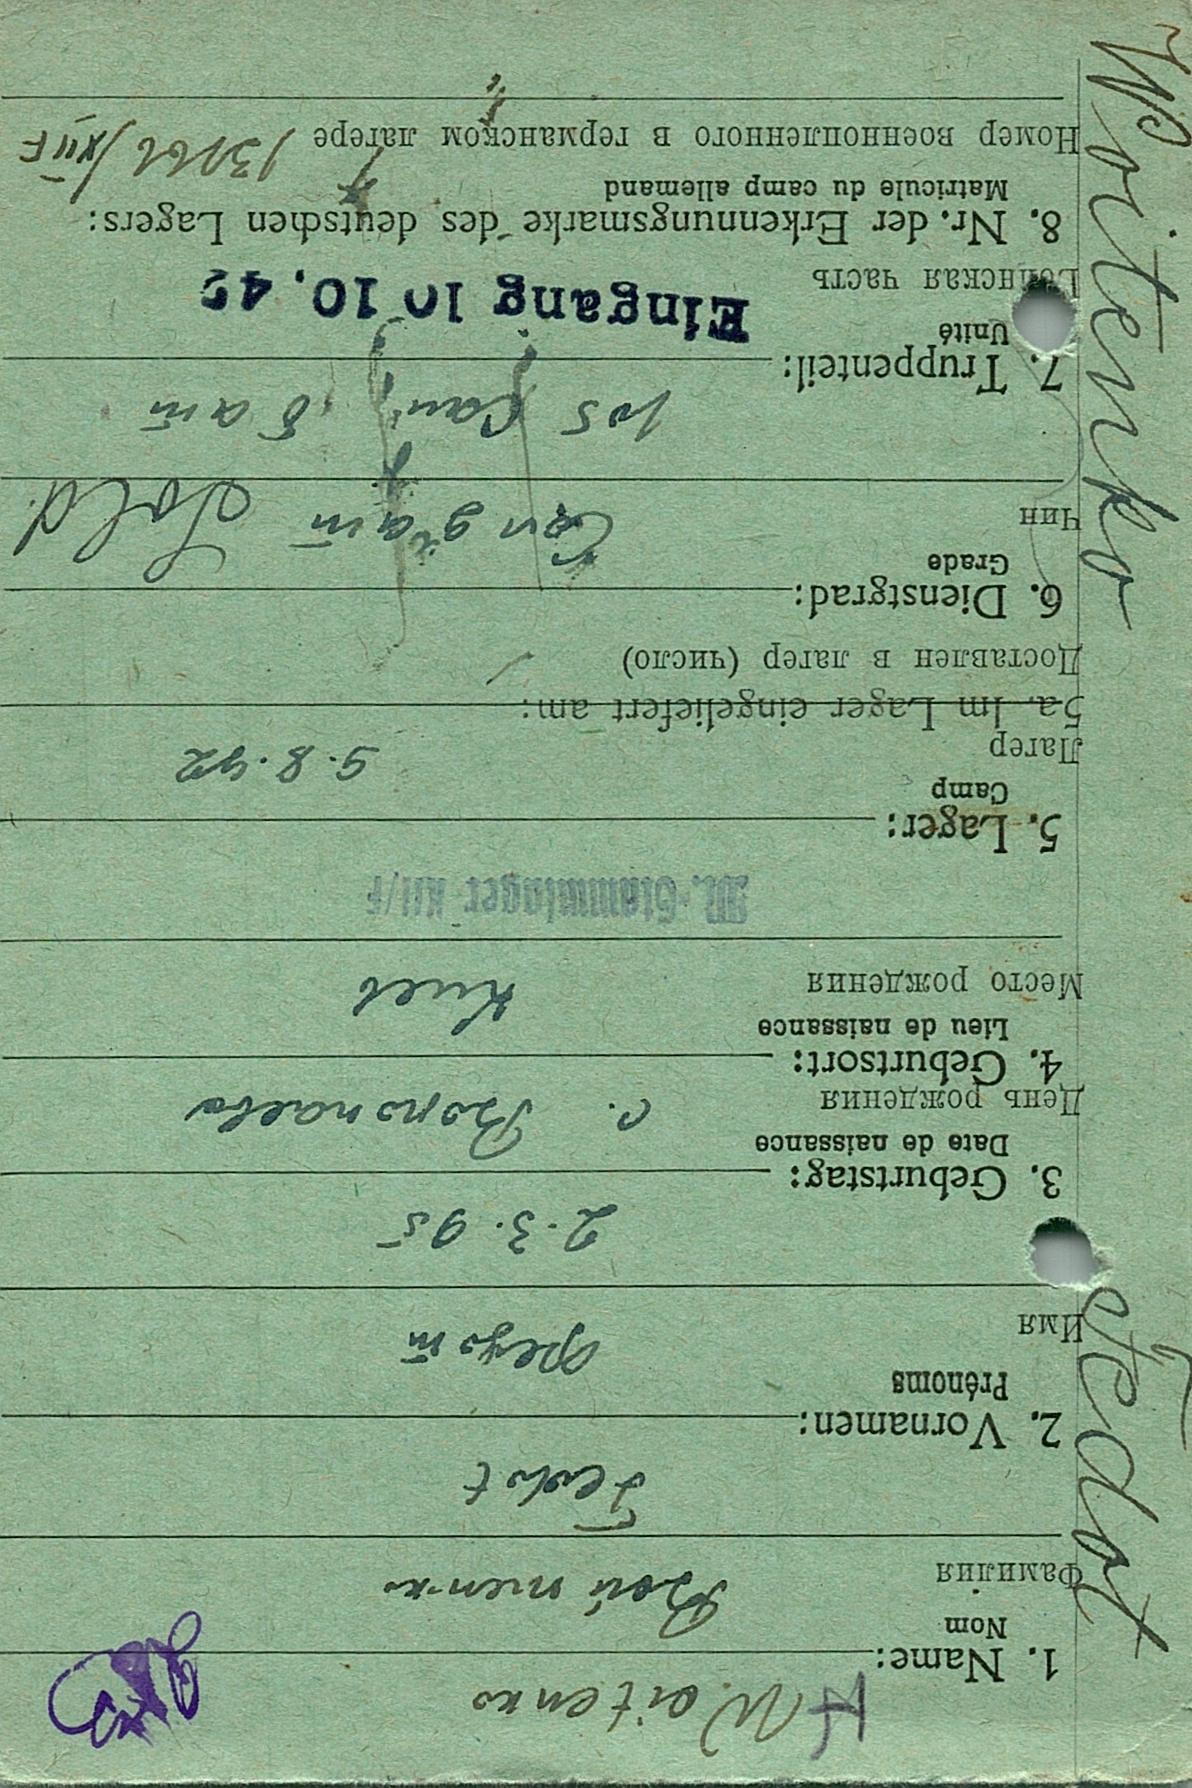 Woitenko
1. Name:
Nom
Войтенко
Фамилия
Fedot
2. Vornamen:
Prénoms
Федот
Имя
2.3.95
3. Geburtstag:
Date de naissance
День рождения
с.
4. Geburtsort:
Lieu de naissance
Киев
Место рождения
M.-Stammlager XII/F
5. Lager:
Camp
Лагер
5.8.42
5a. Im Lager eingeliefert am:
Доставлен в лагер (число)
6. Dienstgrad:
Grade
Солдат Sold.
Чин
105 Сап. бат
7. Truppenteil:
Unité
Воинская часть
Eingang 10 10. 42
8. Nr. der Erkennungsmarke des deutschen Lagers:
Matricule du camp allemand
Номер военнопленного в германском лагере
/XII F
Woitenko Fedot